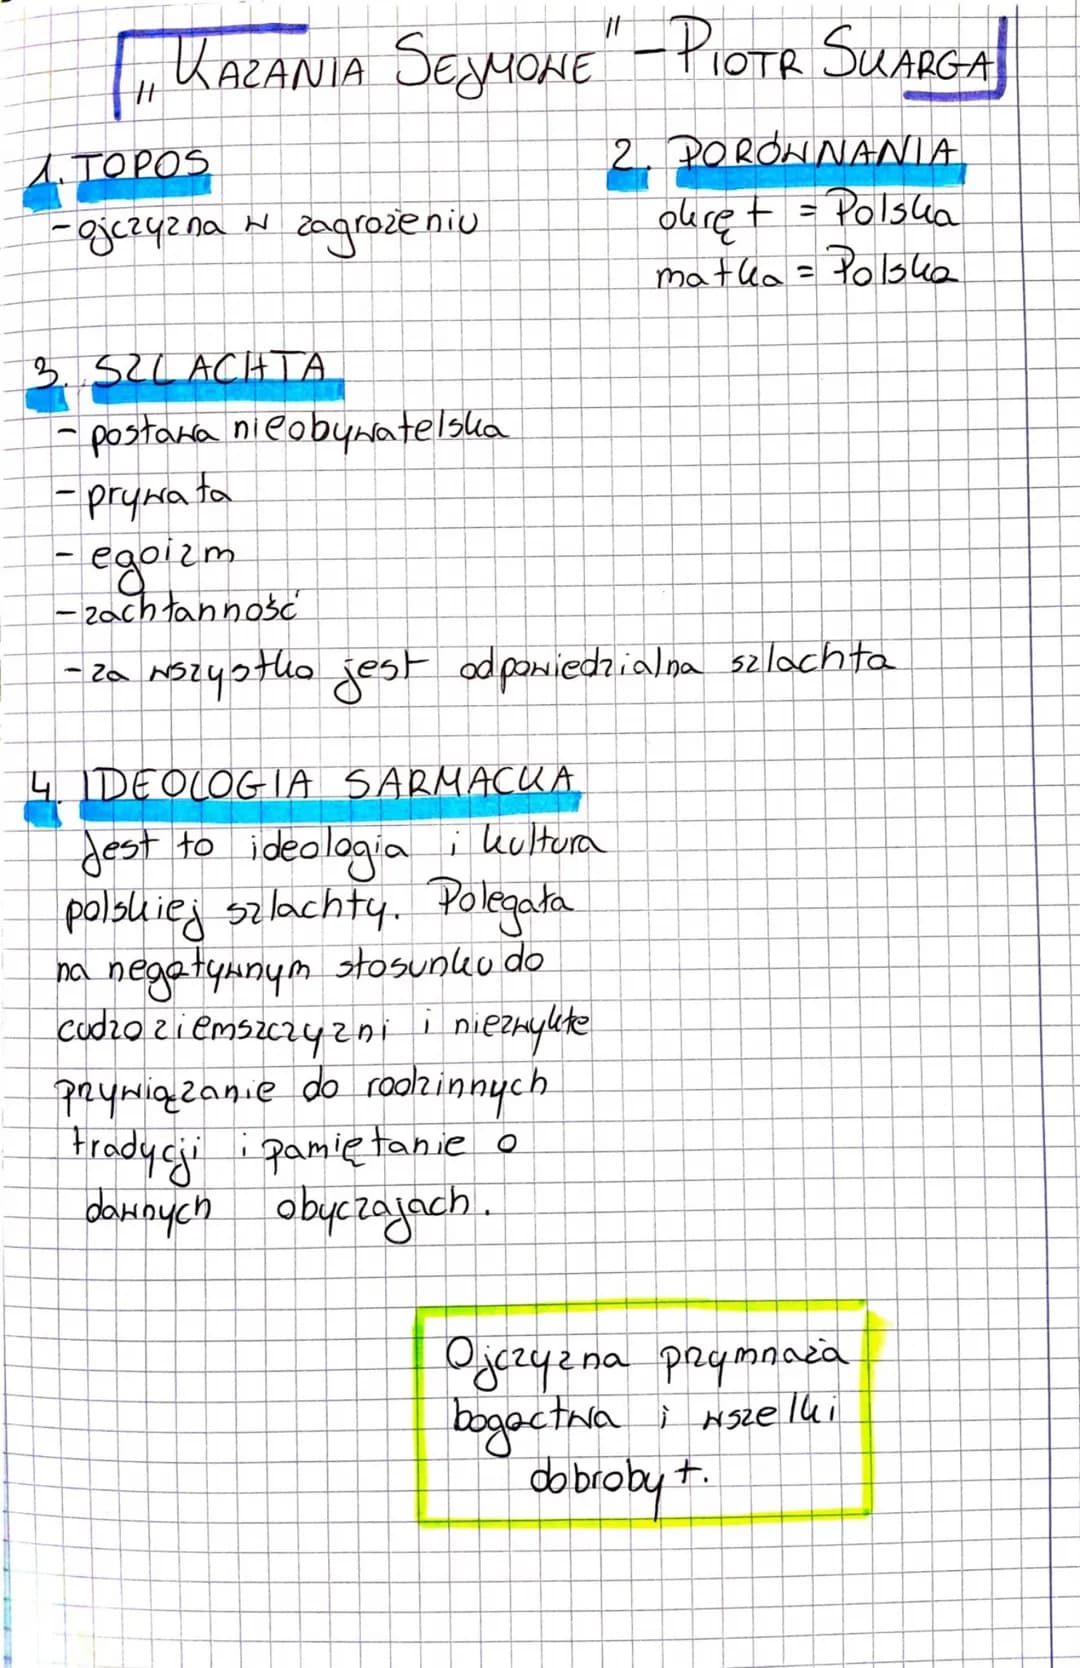 „KAZANIA SEJMOWE” - PIOTR SKARGA
1. TOPOS
- ojczyzna w zagrożeniu
2. PORÓWNANIA
okręt = Polska
matka = Polska
3. SZLACHTA
- postawa nieobywatelska
- prywata
- egoizm
- zachłanność
- za wszystko jest odpowiedzialna szlachta
4. IDEOLOGIA SARMACKA
Jest to ideologia i kultura
polskiej szlachty. Polegała
na negatywnym stosunku do
cudzoziemszczyzni i niezwykłe
przywiązanie do rodzinnych
tradycji i pamiętanie o
dawnych obyczajach.
Ojczyzna przymnaża
bogactwa i wszelki
dobrobyt.